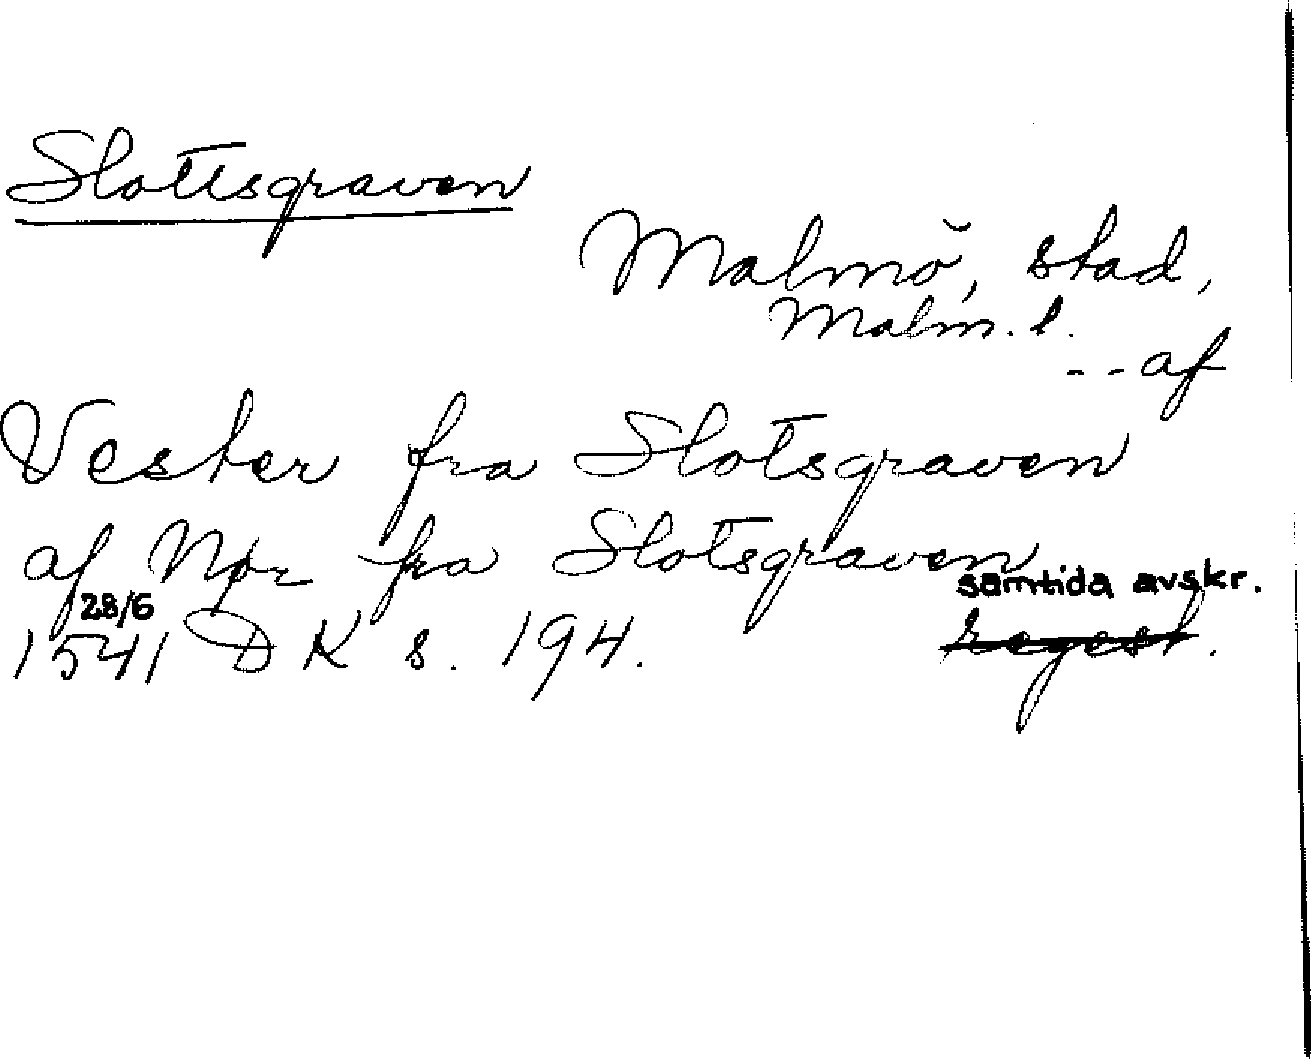 Slottsgraven
Malmö, stad,
Malm. l.
-- af
Vester fra Slotsgraven
af Nør fra Slotsgraven
samtida avskr.
28/6
1541 DK s. 194. regest.